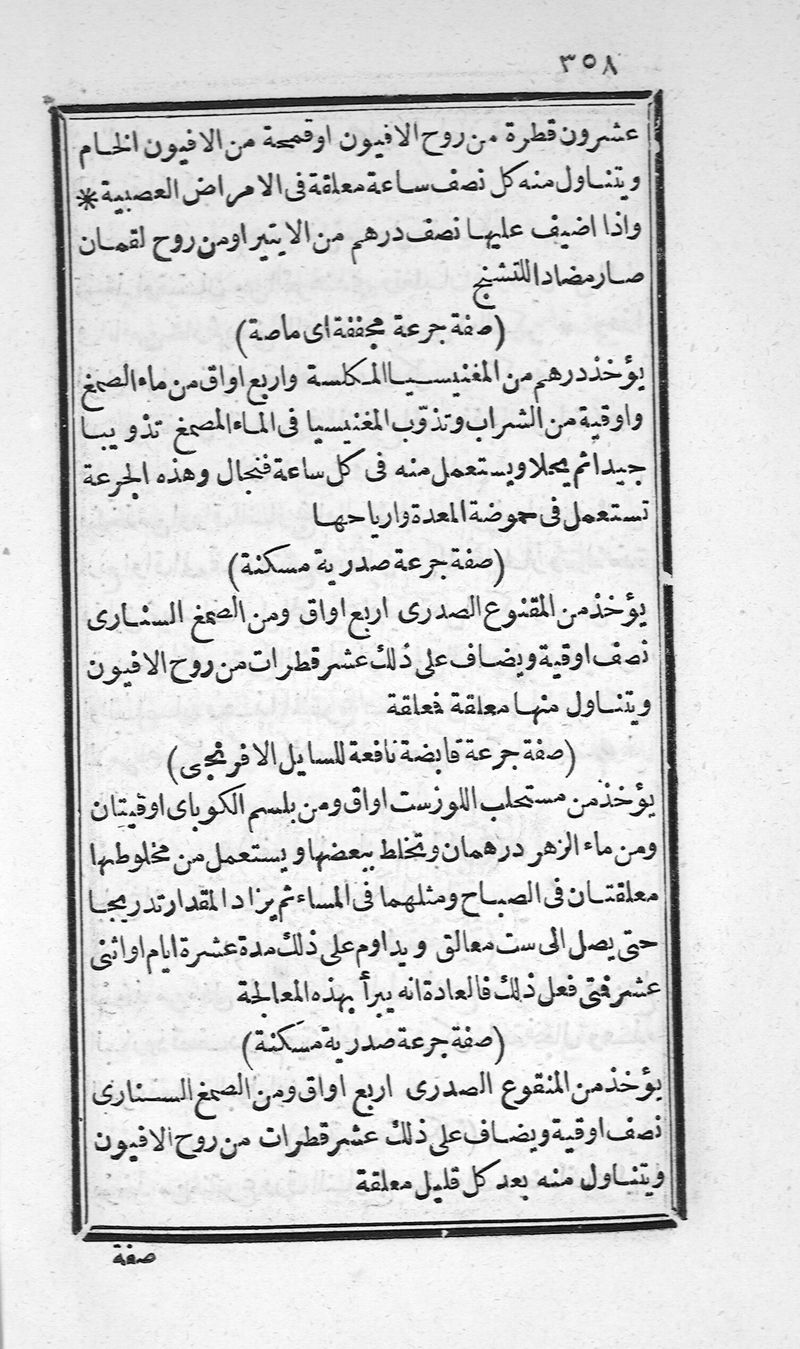 ٣٥٨
عشرون قطرة من روح الافيون او قمحة من الافيون الخام
ويتناول منه كل نصف ساعة معلقة فى الامراض العصبية *
واذا اضيف عليها نصف درهم من الايتير او من روح لقمان
صار مضادا للتشنج
(صفة جرعة مجففة اى ماصة)
يؤخذ درهم من المغنيسيا المكلسة واربع اواق من ماء الصمغ
واوقية من الشراب وتذوّب المغنيسيا فى الماء المصمغ تذويبا
جيدا ثم يحلا ويستعمل منه فى كل ساعة فنجال وهذه الجرعة
تستعمل فى حموضة المعدة وارياحها
(صفة جرعة صدرية مسكنة)
يؤخذ من المقنوع الصدرى اربع اواق ومن الصمغ السنارى
نصف اوقية ويضاف على ذلك عشر قطرات من روح الافيون
ويتناول منها معلقة فعلقة
(صفة جرعة قابضة نافعة للسايل الافرنجى)
يؤخذ من مستحلب اللوز ست اواق ومن بلسم الكوباى اوقيتان
ومن ماء الزهر درهمان وتخلط ببعضها ويستعمل من مخلوطها
معلقتان فى الصباح ومثلهما فى المساء ثم يزاد المقدار تدريجا
حتى يصل الى ست معالق ويداوم على ذلك مدة عشرة ايام او اثنى
عشر فتى فعل ذلك فالعادة انه يبرأ بهذه المعالجة
(صفة جرعة صدرية مسكنة)
يؤخذ من المنقوع الصدرى اربع اواق ومن الصمغ السنارى
نصف اوقية ويضاف على ذلك عشر قطرات من روح الافيون
ويتناول منه بعد كل قليل معلقة
صفة